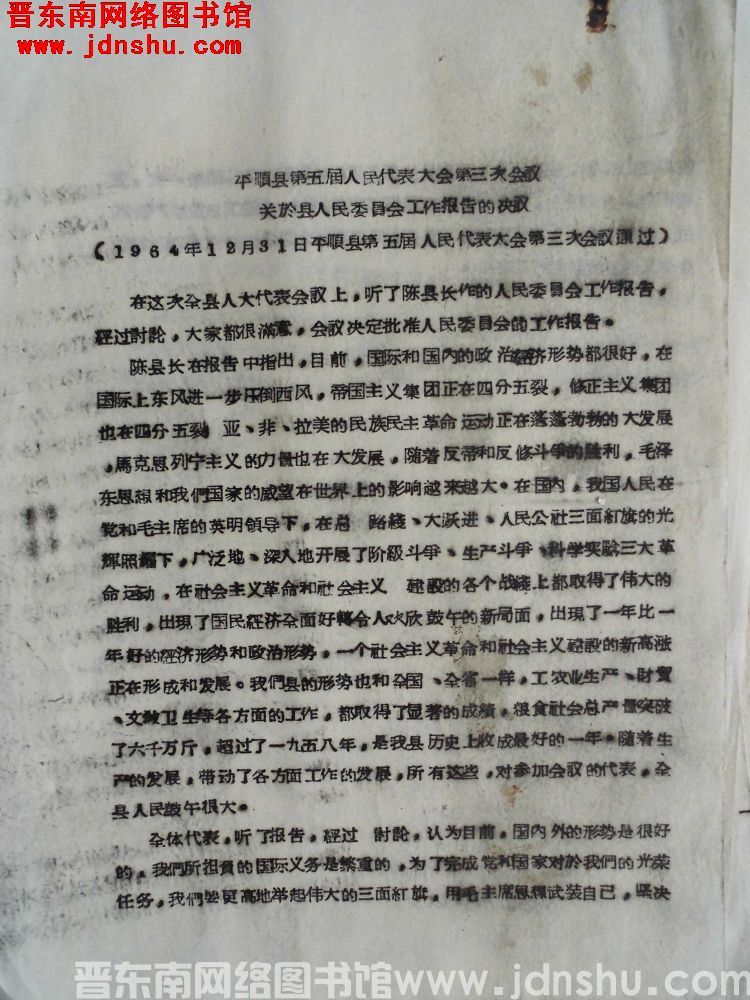 晋东南网络图书馆
www.jdnshu.com
平順县第五届人民代表大会第三次会議
关於县人民委員会工作报告的决議
（1964年12月31日平順县第五届人民代表大会第三次会議通过）
在这次全县人大代表会議上，听了陈县长作的人民委員会工作报告，
經过討論，大家都很滿意，会議决定批准人民委員会的工作报告。
陈县长在报告中指出，目前，国际和国内的政治經济形势都很好，在
国际上东风进一步压倒西风，帝国主义集团正在四分五裂，修正主义集团
也在四分五裂 亚、非、拉美的民族民主革命运动正在蓬蓬勃勃的大发展
，馬克思列宁主义的力量也在大发展，随着反帝和反修斗爭的胜利，毛泽
东思想和我們国家的威望在世界上的影响越来越大。在国内，我国人民在
党和毛主席的英明領导下，在总 路綫、大跃进、人民公社三面紅旗的光
輝照耀下，广泛地、深入地开展了阶級斗爭、生产斗爭、科学实驗三大革
命运动，在社会主义革命和社会主义 建設的各个战綫上都取得了伟大的
胜利，出現了国民經济全面好轉令人欢欣鼓午的新局面，出現了一年比一
年好的經济形势和政治形势，一个社会主义革命和社会主义建設的新高涨
正在形成和发展。我們县的形势也和全国、全省一样，工农业生产、財貿
、文教卫生等各方面的工作，都取得了显著的成績，粮食社会总产量突破
了六千万斤，超过了一九五八年，是我县历史上收成最好的一年。随着生
产的发展，带动了各方面工作的发展，所有这些，对参加会議的代表，全
县人民鼓午很大。
全体代表，听了报告，經过 討論，认为目前，国内外的形势是很好
的，我們所担負的国际义务是繁重的，为了完成党和国家对於我們的光荣
任务，我們要更高地举起伟大的三面紅旗，用毛主席思想武装自己，坚决
晋东南网络图书馆www.jdnshu.com